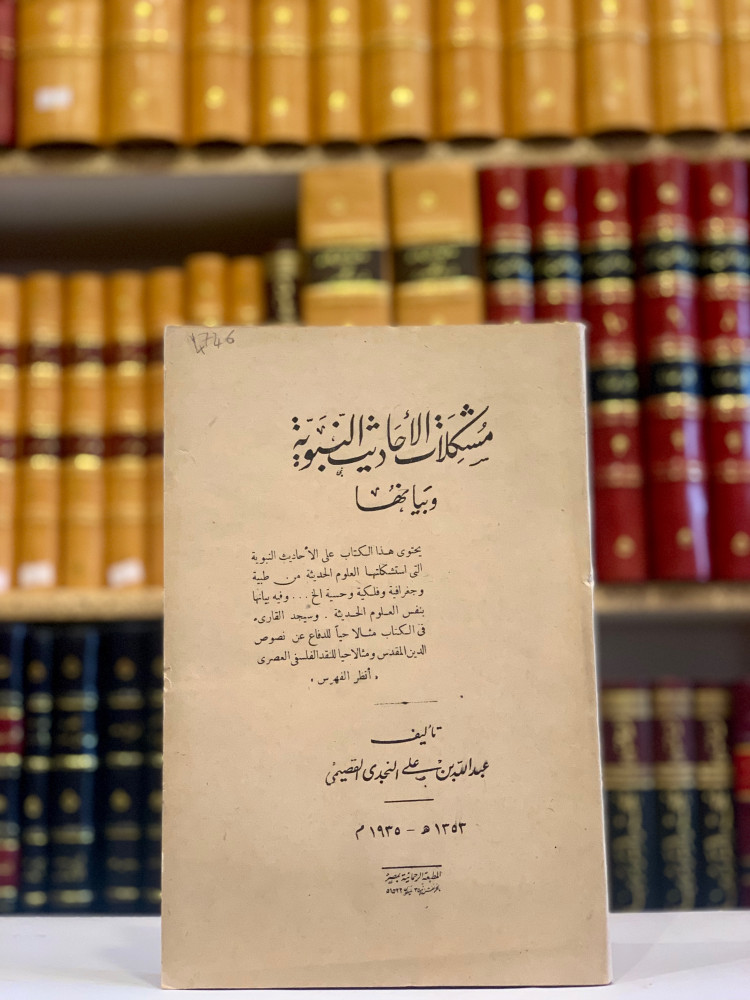 4746
مشكلات الأحاديث النبوية
وبيانها
يحتوى هذا الكتاب على الأحاديث النبوية
التى استشكلتها العلوم الحديثة من طبية
وجغرافية وفلكية وحسية الخ ... وفيه بيانها
بنفس العلوم الحديثة . وسيجد القارىء
فى الكتاب مثالا حياً للدفاع عن نصوص
الدين المقدس ومثالا حيا للنقد الفلسفى العصرى
« أنظر الفهرس »
تأليف
عبد الله بن على النجدى القصيمى
١٣٥٣ هـ - ١٩٣٥ م
المطبعة الرحمانية بمصر